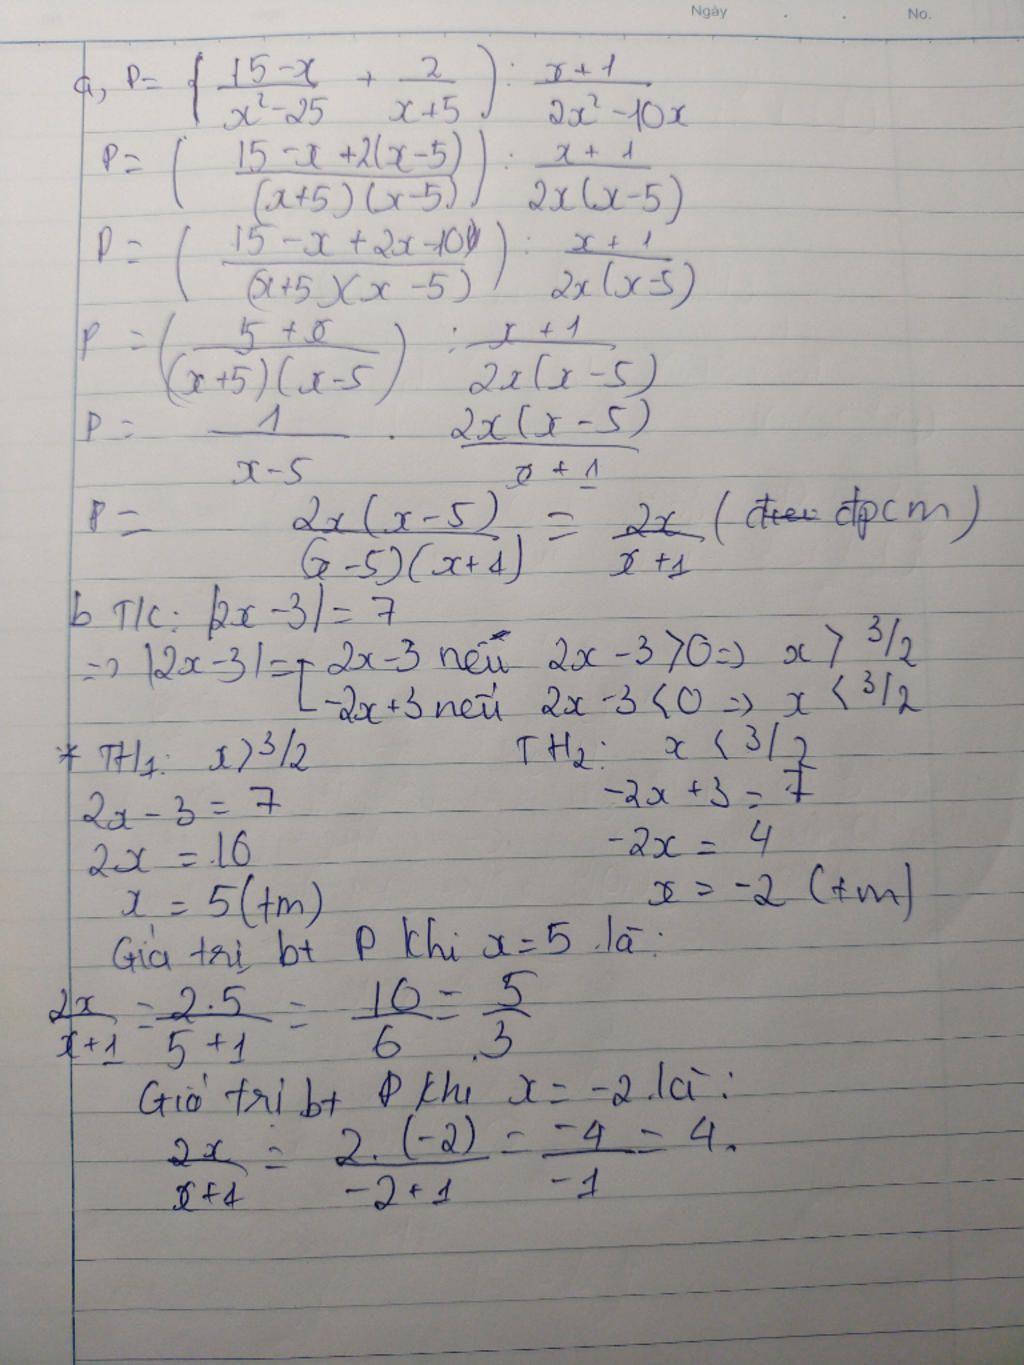 Ngày . . No.
a, P = ( (15-x)/(x²-25) + 2/(x+5) ) : (x+1)/(2x²-10x)
P = ( (15-x+2(x-5))/((x+5)(x-5)) ) : (x+1)/(2x(x-5))
P = ( (15-x+2x-10)/((x+5)(x-5)) ) : (x+1)/(2x(x-5))
P = ( (5+x)/((x+5)(x-5) ) : (x+1)/(2x(x-5))
P = 1/(x-5) . (2x(x-5))/(x+1)
P = (2x(x-5))/((x-5)(x+1)) = 2x/(x+1) ( đpcm )
b T/c: |2x-3| = 7
=> |2x-3| = [ 2x-3 nếu 2x-3>0 => x > 3/2
-2x+3 nếu 2x-3<0 => x < 3/2
* TH1: x>3/2 TH2: x < 3/2
2x-3 = 7 -2x+3 = 7
2x = 10 -2x = 4
x = 5 (tm) x = -2 (tm)
Giá trị bt P khi x=5 là:
2x/(x+1) = 2.5/(5+1) = 10/6 = 5/3
Giá trị bt P khi x = -2 là:
2x/(x+1) = 2.(-2)/(-2+1) = -4/-1 = 4.